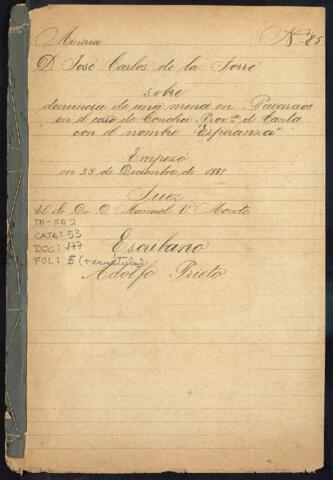 Minería Nº 85
D. José Carlos de la Torre
sobre
denuncia de una mina en Pacaraos
en el cerro de Conchao Provª de Canta
con el nombre "Esperanza"
Empezó
en 23 de Diciembre de 1887
Juez
el Sr Dr D Manuel V Morote
TM-RE 2
CAJA: 53
DOC: 177
FOL: 5 (+ carátula)
Escribano
Adolfo Prieto